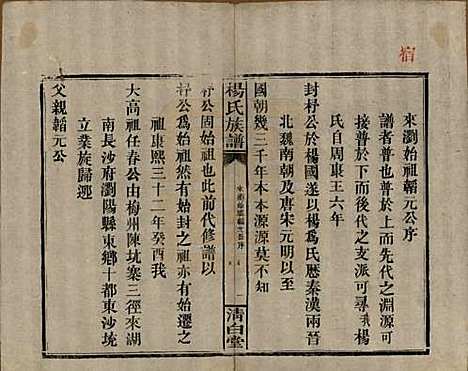 來瀏始祖韜元公序
譜者普也普於上而先代之淵源可
接普於下而後代之支派可尋楊
氏自周康王六年
封杼公於楊國遂以楊爲氏歷秦漢兩晉
北魏南朝及唐宋元明以至
國朝幾三千年木本源源莫不知
楊氏族譜
來瀏始祖韜元公序
一
清白堂
杼公固始祖也此前代修譜以
杼公爲始祖然有始封之祖亦有始遷之
祖康熙三十二年癸酉我
大高祖任春公由梅州陳坑寨三徑來湖
南長沙府瀏陽縣東鄉十都東沙垸
立業旋歸迎
父親韜元公